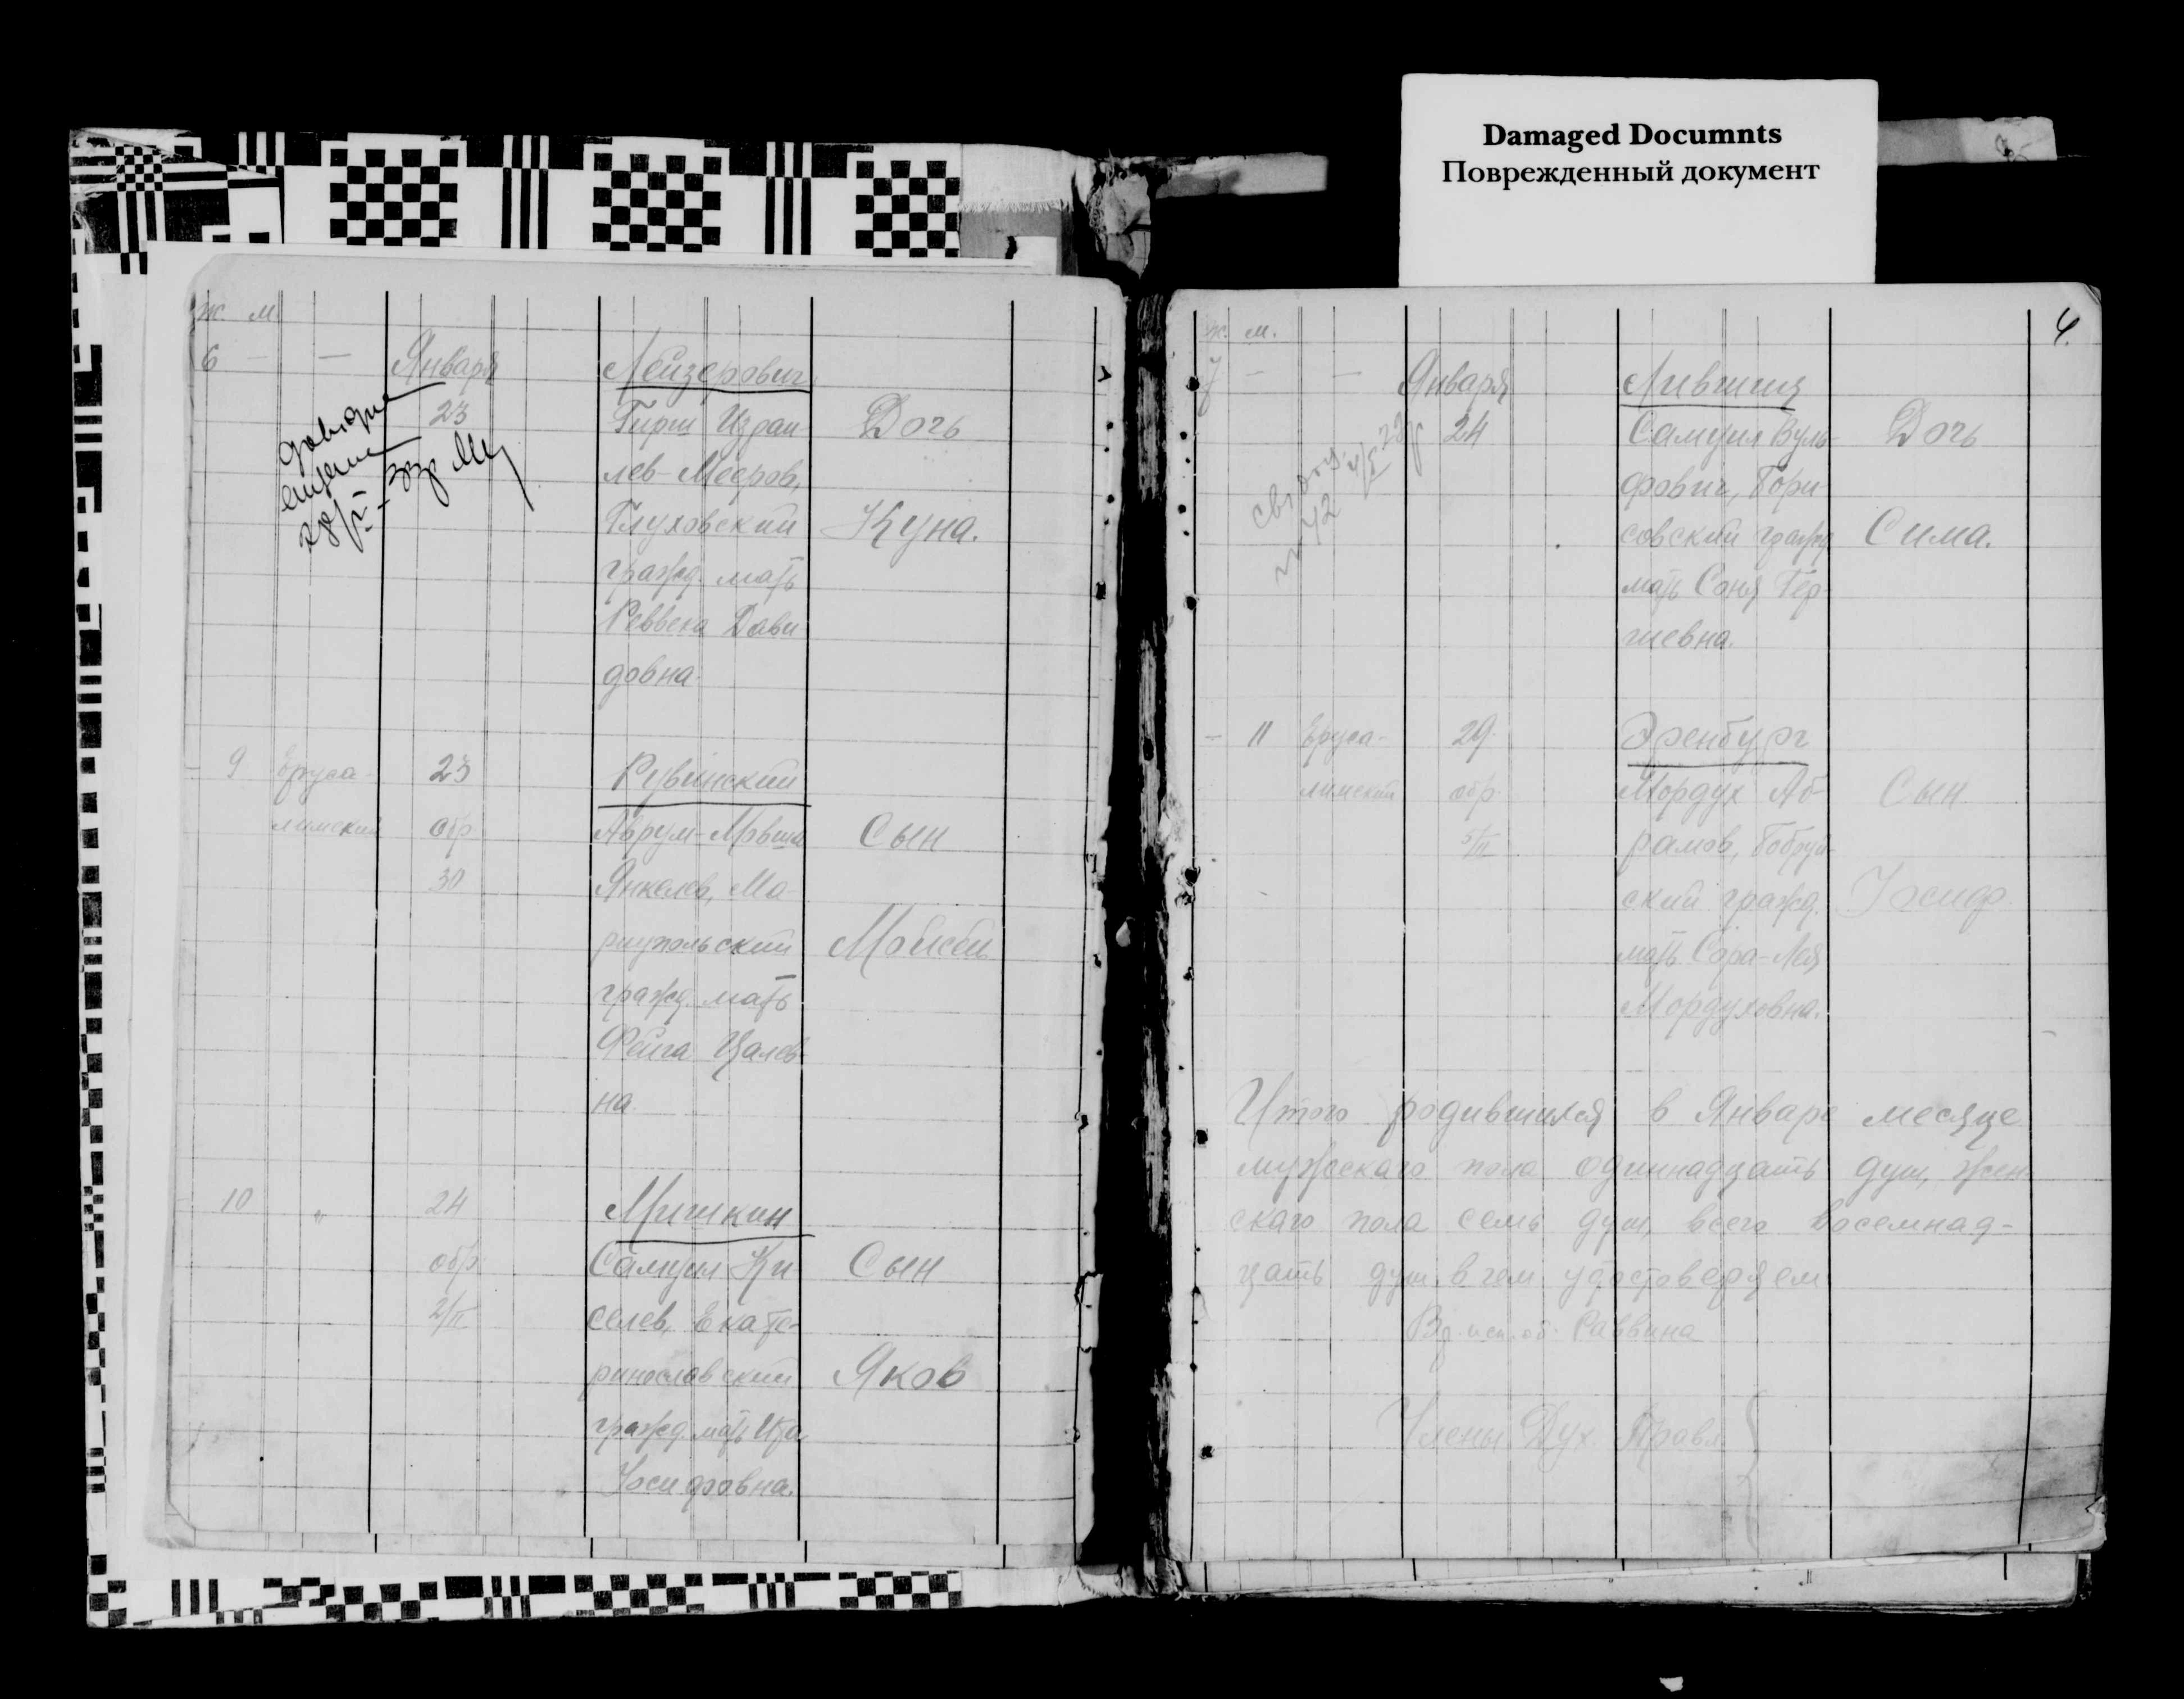 Damaged Documnts
Поврежденный документ
ж. м.
6 — — Января
23
Лейзерович
Гирш Израи-
лев-Мееров,
Глуховский
гражд. мать
Реввека Дави
довна
Дочь
Куна.
9 Еруса-
лимский
23
обр
30
Рувинский
Аврум-Мовша
Янкелев, Ма-
риупольский
гражд. мать
Фейга Цалев-
на.
Сын
Мойсей
10 "
24
обр
2/II
Мишкин
Самуил Ки
селев, Екате-
ринославский
гражд. мать Ита
Иосифовна.
Сын
Яков
4.
ж. м.
7 — — Января
24
Лившиц
Самуил Вуль-
фович, Бори-
совский гражд
мать Соня Гер-
шевна.
Дочь
Сима.
— 11 Еруса-
лимский
29
обр.
5/II
Эренбург
Мордух Аб-
рамов, Бобруй-
ский гражд.
мать Сора-Лея
Мордуховна.
Сын
Иосиф
Итого родившихся в Январе месяце
мужескаго пола одиннадцать душ, жен-
скаго пола семь душ, всего восемнад-
цать душ в чем удостоверяем
Вр. исп. об. Раввина
Члены Дух. Правл.